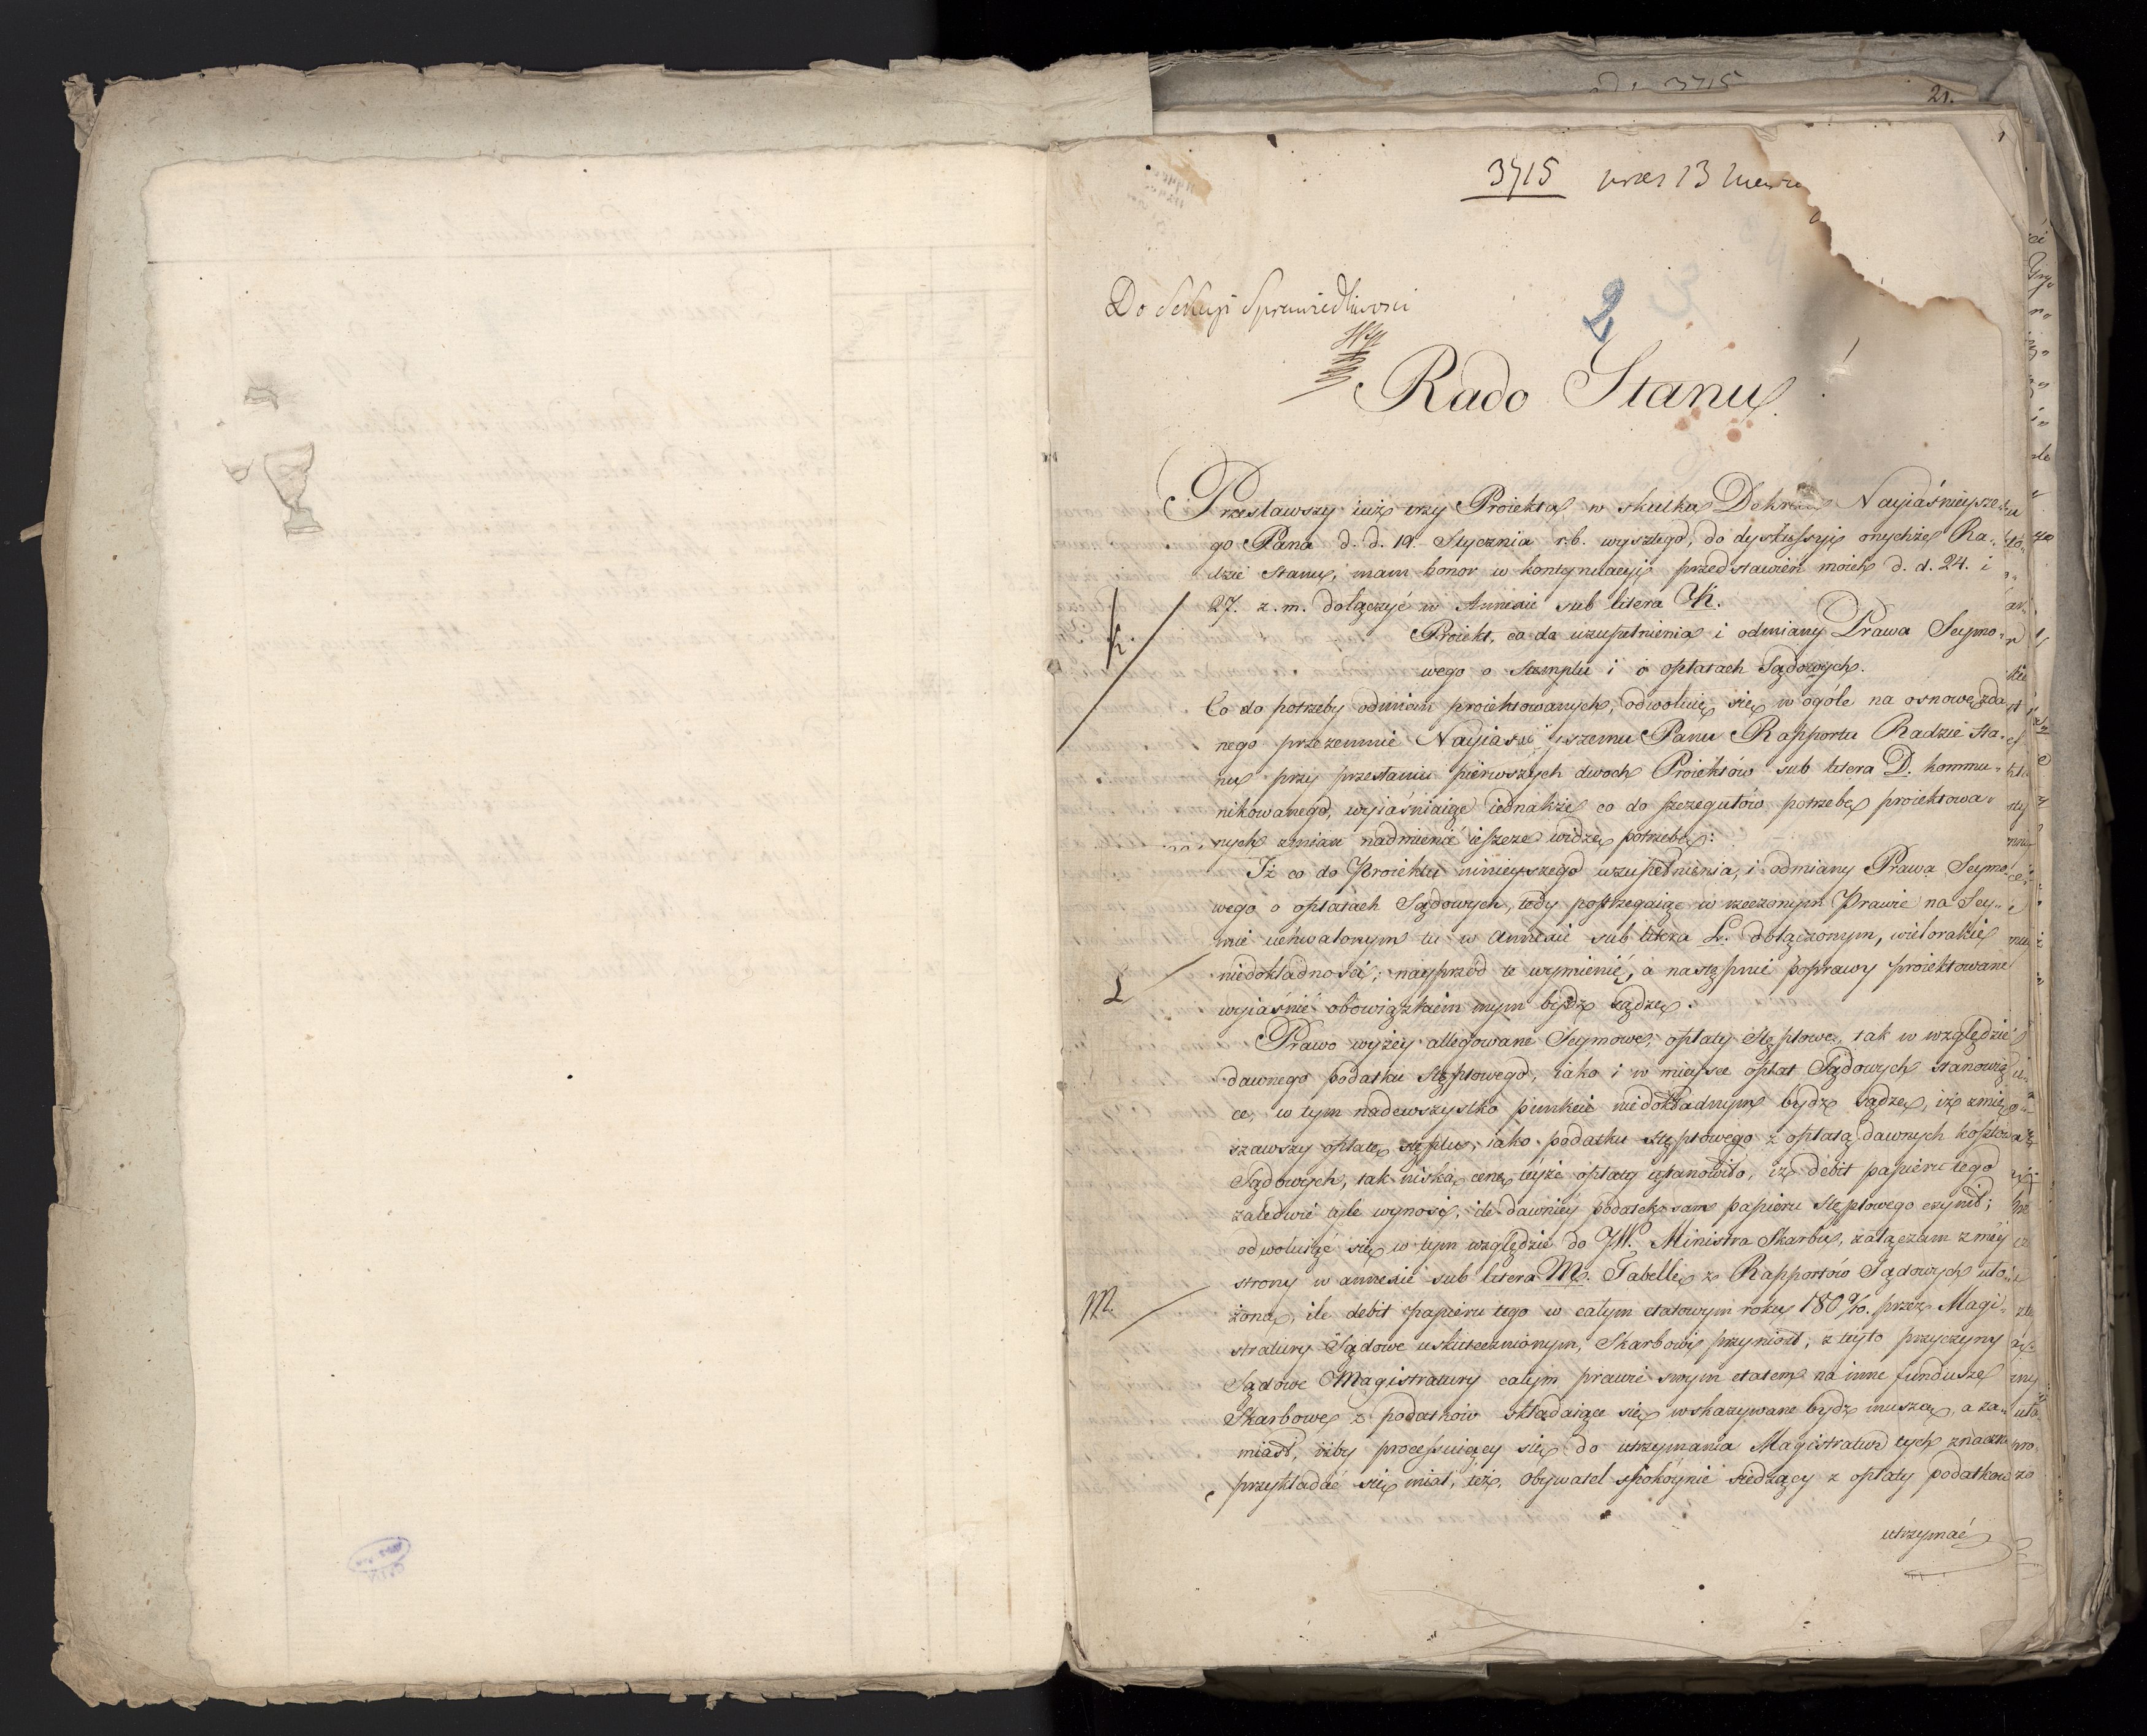 3715
21.
3715 prces 13 
Do Sekcyi Sprawiedliwosci
2
Rado Stanu
Przesławszy iuż trzy Proiekta, w skutku Dekretu Nayiaśnieysze-
go Pana d. d. 19. Stycznia r. b. wyszłego, do dyskussyi onychże Ra-
dzie Stanu, mam honor w kontynuacyi przedstawień moich d. d. 24. i
27. z. m. dołączyć w Annexie sub litera K.
K.
Proiekt, co do uzupełnienia i odmiany Prawa Seymo-
wego o Stemplu i o opłatach Sądowych.
Co do potrzeby odmian proiektowanych, odwołuię się w ogóle na osnowę zda-
nego przezemnie Nayiaśnieyszemu Panu Rapportu Radzie Sta-
nu przy przesłaniu pierwszych dwoch Proiektów sub litera D. kommu-
nikowanego, wyiaśniaiąc iednakże co do szczegułów potrzebę proiektowa-
nych zmian nadmienić ieszcze widzę potrzebę:
Iż co do Proiektu ninieyszego uzupełnienia, i odmiany Prawa Seymo-
wego o opłatach Sądowych, tedy postrzegaiąc w rzeczonym Prawie na Sey-
mie uchwalonym tu w Annexie sub litera L. dołączonym, wielorakie
L
niedokładności; nayprzód te wymienić, a następnie poprawy proiektowane
wyiaśnić obowiązkiem mym bydź sądzę.
Prawo wyżey allegowane Seymowe, opłaty Stęplowe, tak w względzie
dawnego podatku stęplowego, iako i w mieysce opłat Sądowych stanowią-
ce, w tym nadewszystko punkcie niedokładnym bydź sądzę, iż zmie-
szawszy opłatę stęplu, iako podatku stęplowego z opłatą dawnych kosztów
Sądowych, tak niską cenę teyże opłaty ustanowiło, iż debit papieru tego
zaledwie tyle wynosi, ile dawniey podatek sam papieru stęplowego czynił;
odwołuiąc się w tym względzie do JW. Ministra Skarbu, załączam z mey
strony w annexie sub litera M. Tabellę z Rapportów Sądowych uło-
M.
żoną, ile debit papieru tego w całym etatowym roku 180 9/10. przez Magi-
stratury Sądowe uskutecznionym, Skarbowi przyniosł; z teyto przyczyny
Sądowe Magistratury całym prawie swym etatem na inne fundusze
Skarbowe z podatków składaiące się wskazywane bydź muszą, a za-
miast, iżby processuiący się do utrzymania Magistratur tych znacznie
przykładać się miał, też, obywatel spokóynie siedzący z opłaty podatków
utrzymać